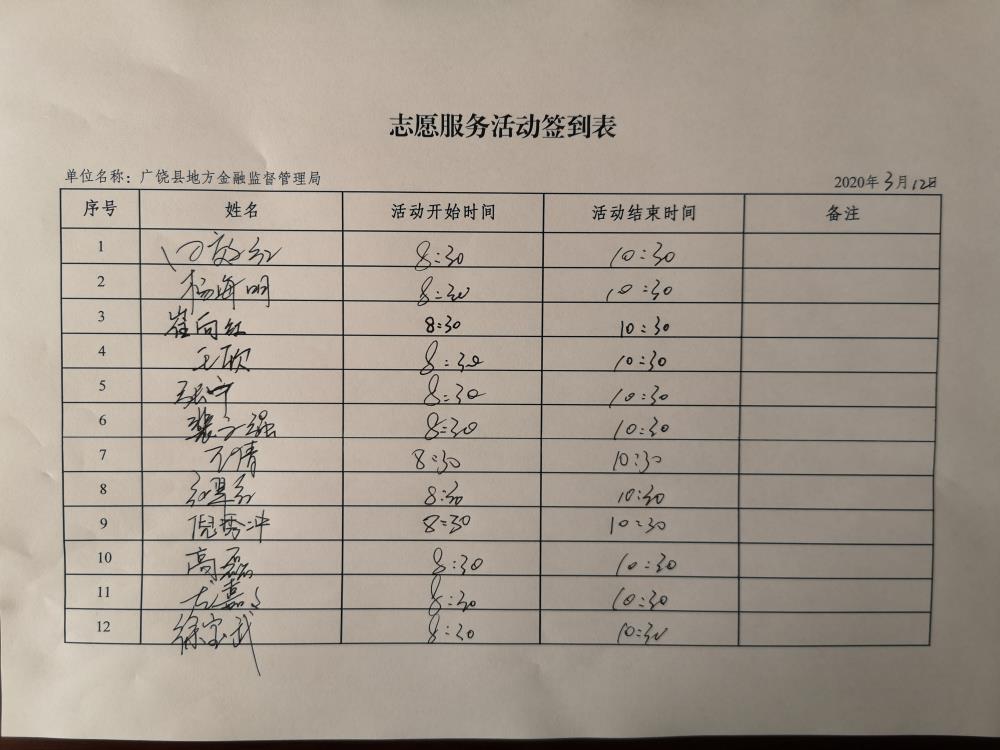 志愿服务活动签到表
单位名称：广饶县地方金融监督管理局 2020年3月12日
序号 姓名 活动开始时间 活动结束时间 备注
1 8:30 10:30
2 杨海明 8:30 10:30
3 崔向红 8:30 10:30
4 王欣 8:30 10:30
5 张宁 8:30 10:30
6 8:30 10:30
7 8:30 10:30
8 8:30 10:30
9 倪秀冲 8:30 10:30
10 高磊 8:30 10:30
11 8:30 10:30
12 徐宝武 8:30 10:30